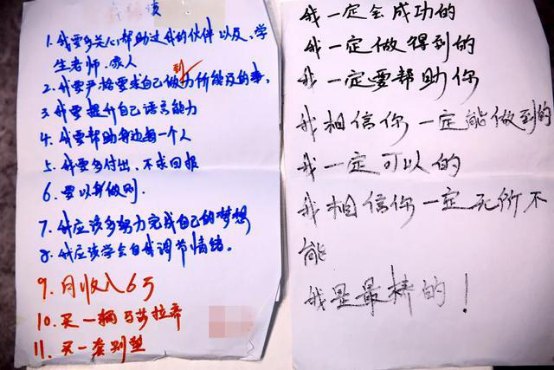 1. 我要多关心帮助过我的伙伴以及,学
生老师.家人
2. 我要严格要求自己做到力所能及的事,
3. 我要提升自己语言能力
4. 我要帮助身边每一个人
5. 我要多付出,不求回报
6. 要以身做则.
7. 我应该多努力完成自己的梦想
8. 我应该学会自我调节情绪。
9. 月收入6万
10. 买一辆马莎拉蒂
11. 买一套别墅
我一定会成功的
我一定做得到的
我一定要帮助你
我相信你一定能做到的
我一定可以的
我相信你一定无所不
能
我是最棒的!